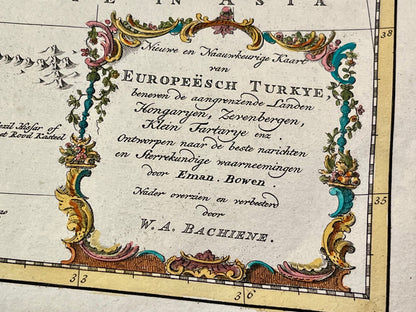 E IN ASIA
38
Nieuwe en Naauwkeurige Kaart
van
EUROPEËSCH TURKYE,
benevens de aangrenzende Landen
Hongaryen, Zevenbergen,
Klein Tartarye enz.
Ontworpen naar de beste narichten
en Sterrekundige waarneemingen
door Eman. Bowen.
Nader overzien en verbeterd
door
W. A. BACHIENE.
Kizil Hissar of
het Rood Kasteel
35
33
36